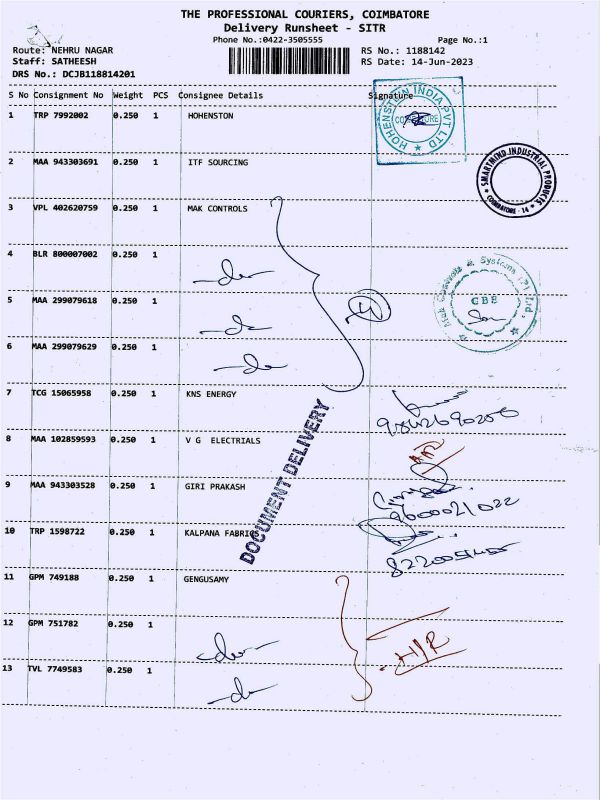 THE PROFESSIONAL COURIERS, COIMBATORE
Delivery Runsheet - SITR
Phone No.:0422-3505555 Page No.:1
Route: NEHRU NAGAR RS No.: 1188142
Staff: SATHEESH RS Date: 14-Jun-2023
DRS No.: DCJB118814201
S No Consignment No Weight PCS Consignee Details Signature
1 TRP 7992002 0.250 1 HOHENSTON
HOHENSTEIN INDIA PVT LTD
COIMBATORE
2 MAA 943303691 0.250 1 ITF SOURCING
SMARTMIND INDUSTRIAL PRODUCTS
COIMBATORE - 14
3 VPL 402620759 0.250 1 MAK CONTROLS
4 BLR 800007002 0.250 1
-do-
Mak Controls & Systems (P) Ltd
CBE
5 MAA 299079618 0.250 1
-do-
4
6 MAA 299079629 0.250 1
-do-
7 TCG 15065958 0.250 1 KNS ENERGY
8 MAA 102859593 0.250 1 V G ELECTRIALS
DOCUMENT DELIVERY
9 MAA 943303528 0.250 1 GIRI PRAKASH
9600021022
10 TRP 1598722 0.250 1 KALPANA FABRICS
11 GPM 749188 0.250 1 GENGUSAMY
12 GPM 751782 0.250 1
-do-
H/R
13 TVL 7749583 0.250 1
-do-